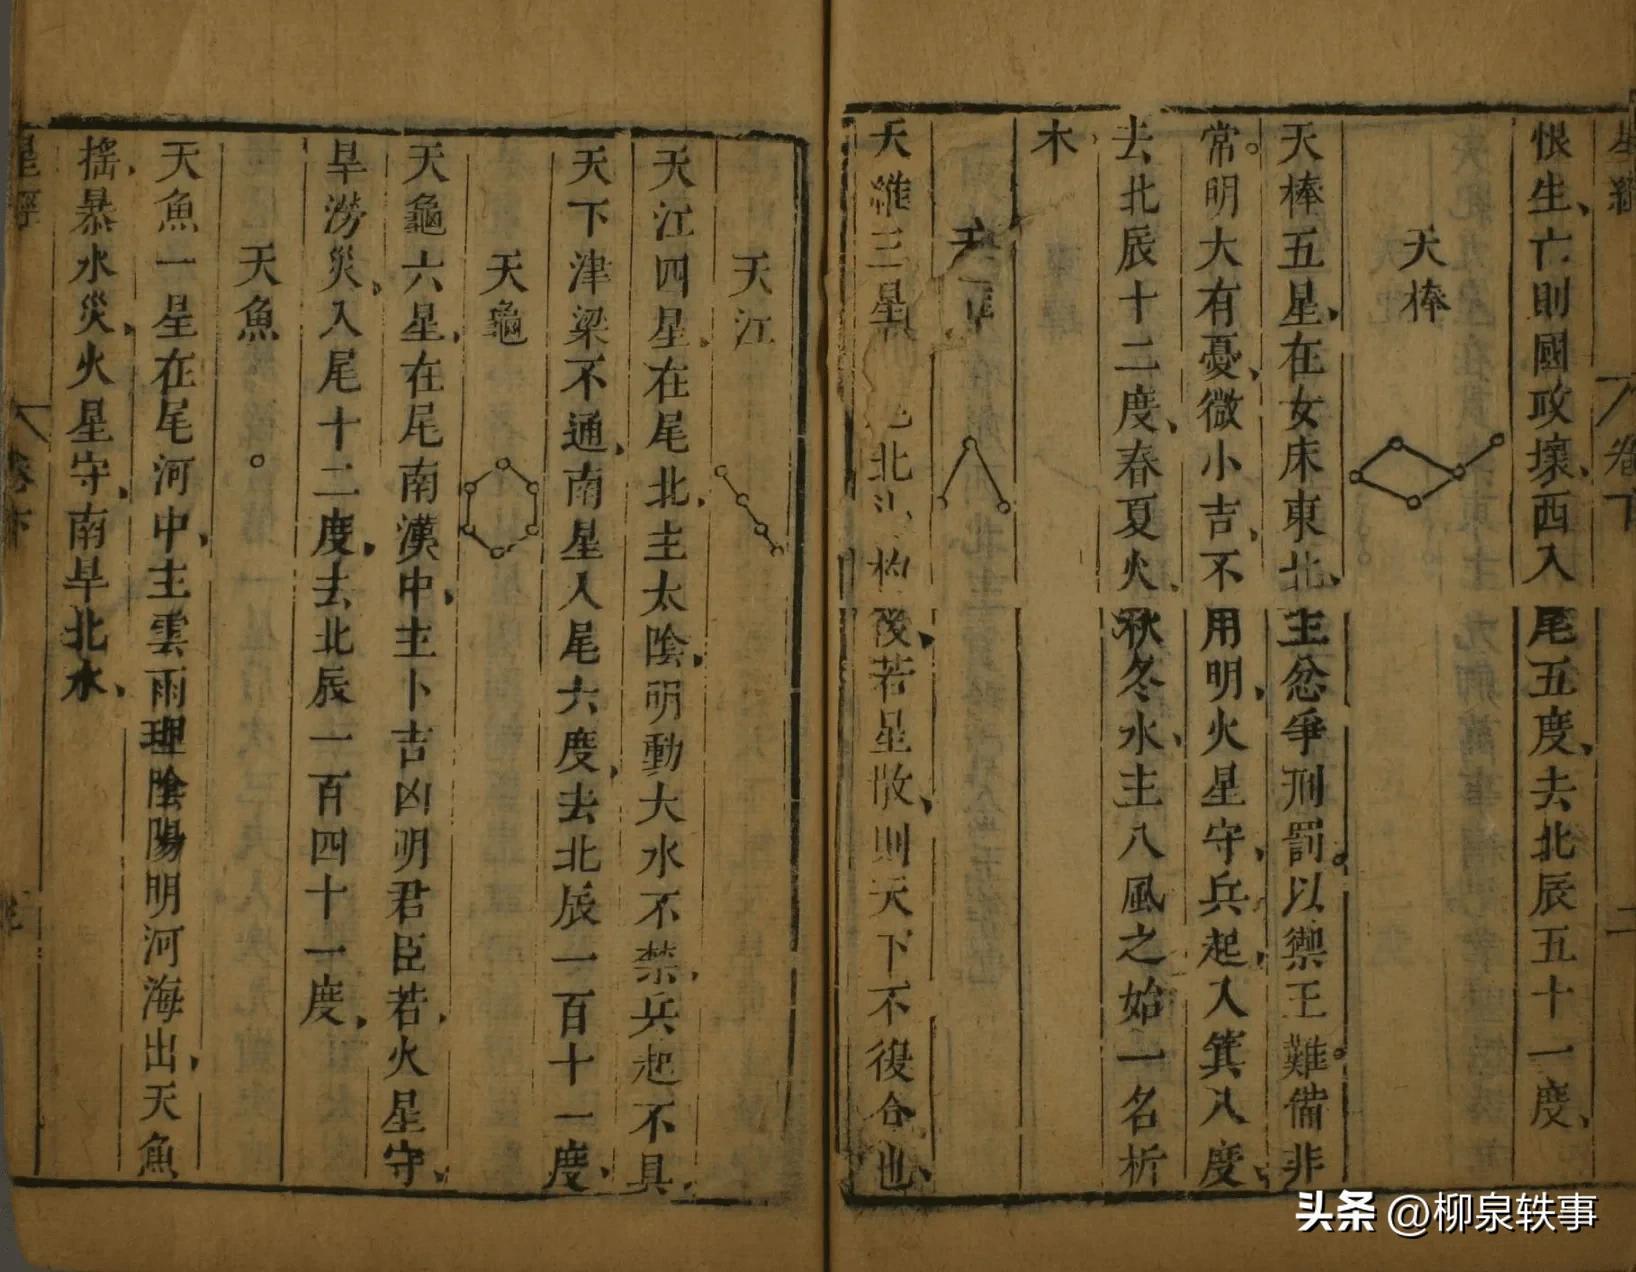 星經
卷下
二
恨生、亡則國政壞、西入尾五度、去北辰五十一度、
天棒
天棒五星、在女床東北、主忿爭刑罰。以禦王難。備非
常。明大有憂、微小吉、不用明、火星守、兵起、入箕八度、
去北辰十二度、春夏火、秋冬水、主八風之始一名析
木
天維三星 北斗杓後、若星散、則天下不復合也、
天江
天江四星、在尾北、主太陰、明動大水不禁、兵起不具
天下津梁不通、南星入尾六度、去北辰一百十一度、
天龜
天龜六星、在尾南漢中、主卜吉凶明君臣若火星守、
旱澇災、入尾十二度、去北辰一百四十一度、
天魚
天魚一星在尾河中、主雲雨理陰陽明河海出、天魚
搖、暴水災、火星守、南旱北水、
星經
卷下
头条 @柳泉轶事